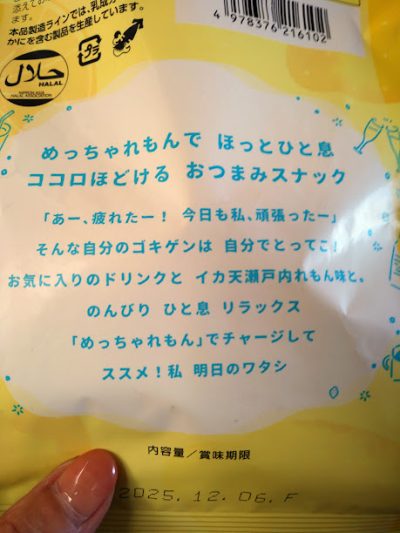 添えてお
ます。
本品製造ラインでは、乳成分
かにを含む製品を生産しています。
4 978376 216102
プラ
حلال
HALAL
NIPPON ASIA
HALAL ASSOCIATION
めっちゃれもんで ほっとひと息
ココロほどける おつまみスナック
「あー、疲れたー! 今日も私、頑張ったー」
そんな自分のゴキゲンは 自分でとってこ!
お気に入りのドリンクと イカ天瀬戸内れもん味と。
のんびり ひと息 リラックス
「めっちゃれもん」でチャージして
ススメ!私 明日のワタシ
内容量/賞味期限
2025.12.06.F